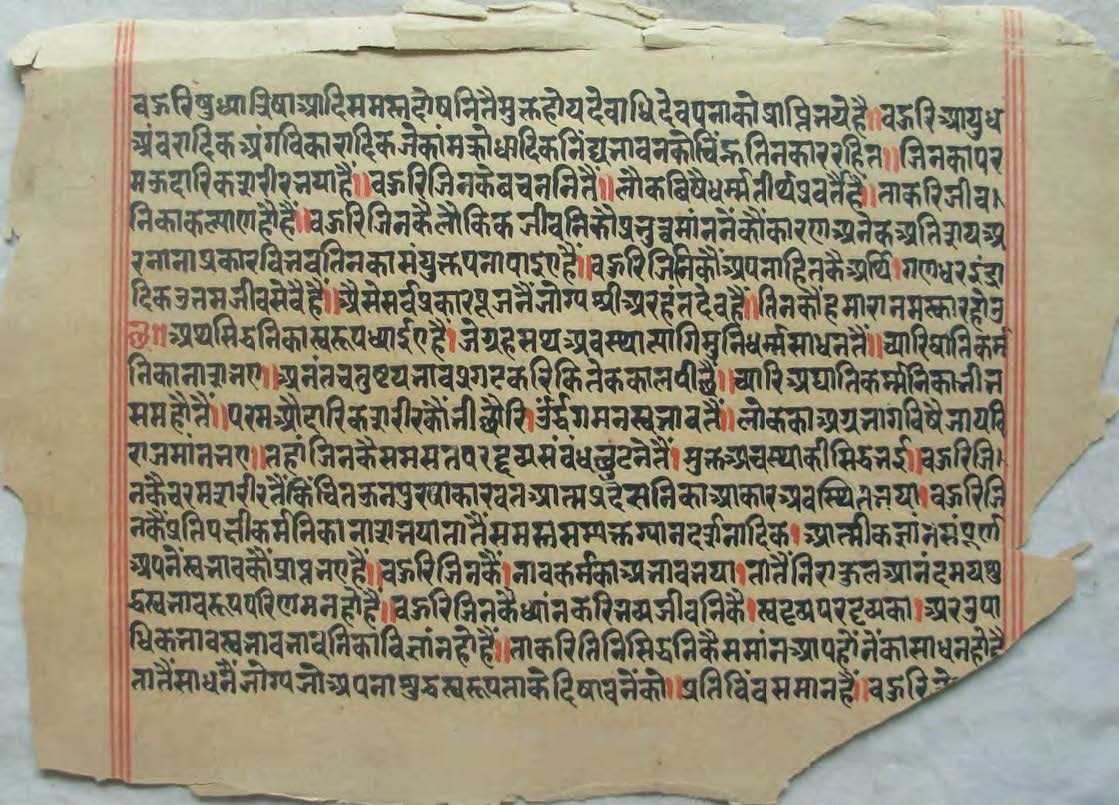 बऊरि षुध्यात्रिषा आदि समस्त दोषनि तै मुक्त होय देवाधिदेवपना को प्राप्ति भये है॥ बऊरि आयुध
अंबरादिक अंगविकारादिक जे कांम क्रोधादिक निंद्य भावन को चिंह्न तिन कार रहित॥ जिन का पर
म ऊदारिक शरीर भया है॥ बऊरि जिन के बचननि तै॥ लोक बिषै धर्म्म तीर्थ प्रवर्तै है॥ ताकरि जीव।
निका कल्याण हौ है॥ बऊरि जिन कै लौकिक जीवनि कौ प्रभुत्व मांननें कौं कारण अनेक अतिशय अ
र नाना प्रकार विभव तिन का संयुक्तपना पाइए है॥ बऊरि जिनि कौं अपना हित कै अर्थि। गणधर इंद्रा
दिक उत्तम जीव सेवै हैं॥ अैसे सर्व प्रकार पूजनें जोग्य श्री अरहंत देव है॥ तिन कौं हमारा नमस्कार होउ
॥ अथ सिद्धनि का स्वरूप ध्याईए है। जे ग्रहस्थ अवस्था त्यागि मुनि धर्म्म साधन तैं॥ च्यारि घाति कर्म
निका नाश भए॥ अनंत चतुष्टय भाव प्रगट करि कितेक काल पीछैं॥ च्यारि अघाति कर्म्मनि का भी भ
सम होतैं॥ परम औदारिक शरीर कौं भी छौरि। उर्द्ध गमन स्वभाव तैं॥ लोक का अग्र भाग विषै जाय वि
राजमांन भए॥ तहां जिन कै समस्त परद्रव्य संबंध छुटने तैं। मुक्त अवस्था की सिद्ध भई॥ बऊरि जि।
न कै चरम शरीर तैं किंचित ऊन पुरषाकारवत आत्मप्रदेसनि का आकार अवस्थित भया। बऊरि जि
न कै प्रतिपक्षी कर्मनि का नाश भया तातैं समस्त सम्यक्त ग्यान दर्शनादिक। आत्मीक ज्ञान संपूर्ण
अपनें स्वभाव कौं प्राप्त भए हैं॥ बऊरि जिन कैं। भावकर्म का अभाव भया। तातैं निराकुल आनंदमय शु
द्ध स्वभाव रूप परिणमन हो है॥ बऊरि जिन कै ध्यांन करि भव्य जीवनि कै। स्वद्रव्य परद्रव्य का। अर उपा
धिक भाव स्वभाव भावनि का विज्ञांन हो है॥ ताकरि तिनि सिद्धनि कै समांन आप होंनें का साधन हो है
तातैं साधनें जोग्य जो अपना शुद्ध स्वरूप ताके दिषावनें को॥ प्रतिबिंब समान है॥ बऊरि